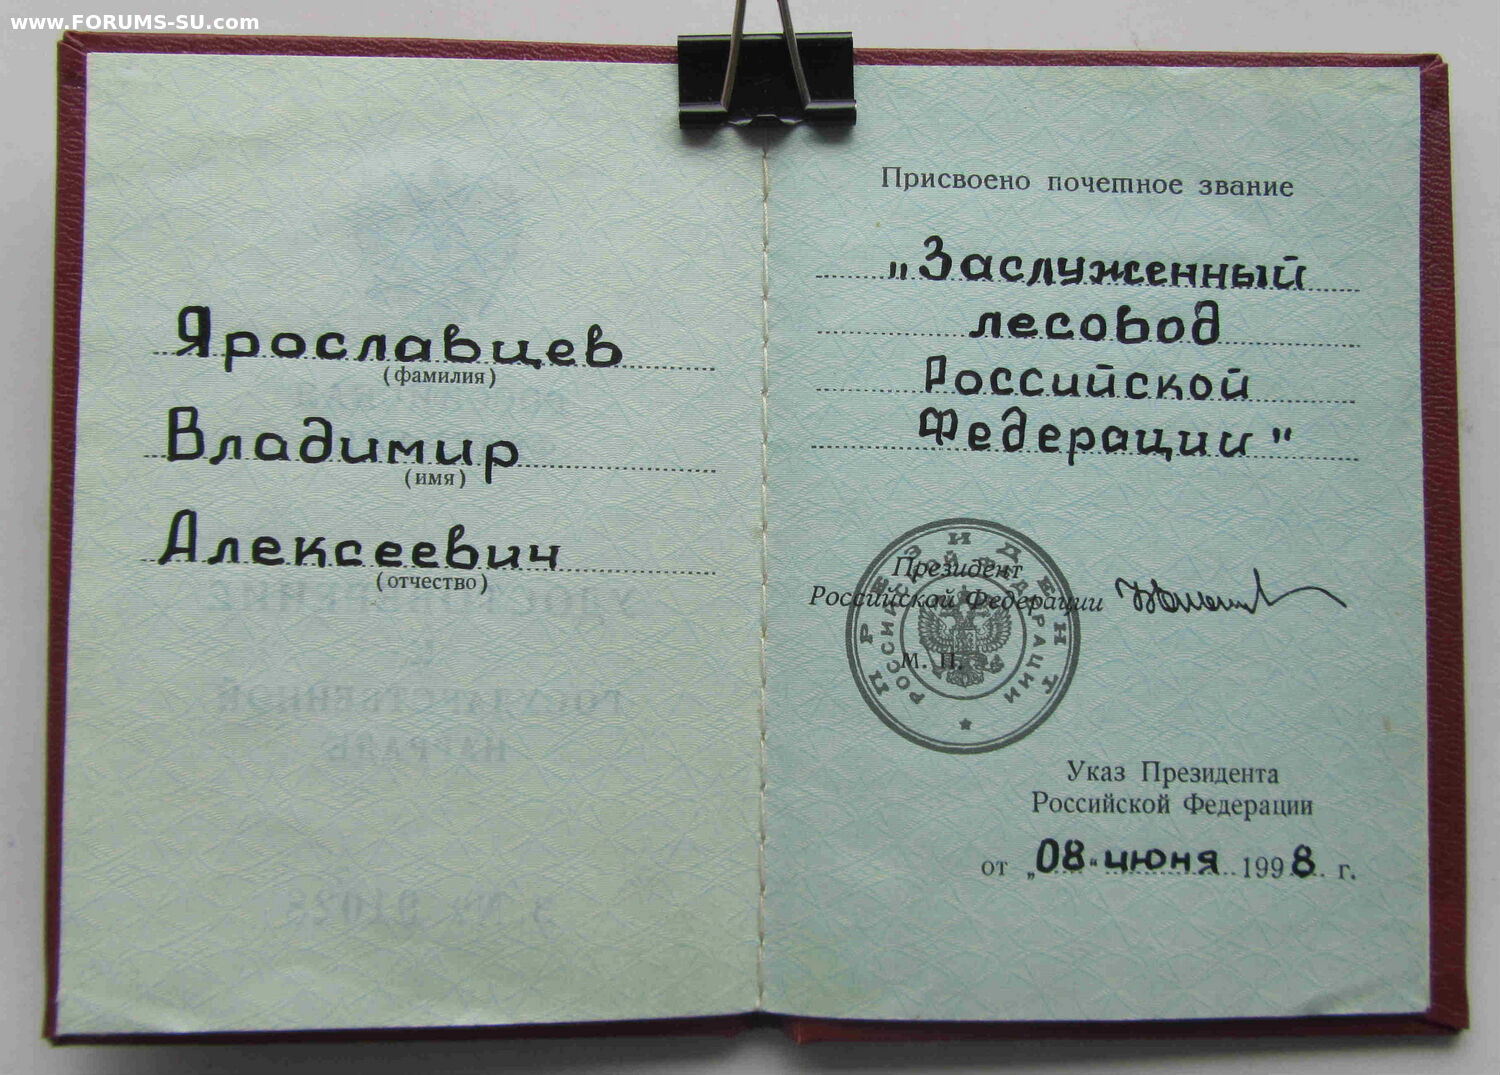 www.FORUMS-SU.com
Ярославцев
(фамилия)
Владимир
(имя)
Алексеевич
(отчество)
Присвоено почетное звание
„Заслуженный
лесовод
Российской
Федерации"
Президент
Российской Федерации
М. П.
ПРЕЗИДЕНТ
РОССИЙСКОЙ ФЕДЕРАЦИИ
Указ Президента
Российской Федерации
от „08" июня 1998 г.